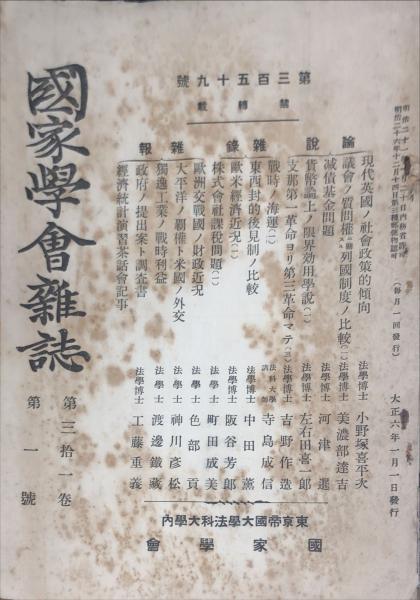 大正六年一月一日發行
(每月一回發行)
第三百五十九號
禁轉載
論說
現代英國ノ社會政策的傾向 法學博士 小野塚喜平次
議會ノ質問權ニ關スル列國制度ノ比較(一) 法學博士 美濃部達吉
減債基金問題 法學博士 河津暹
貨幣論上ノ限界効用學說(一) 法學博士 左右田喜一郎
支那第一革命ヨリ第三革命マテ 法學博士 吉野作造
雜錄
戰時ノ海運(一) 法科大學講師 寺島成信
東西封的後見制ノ比較 法學博士 中田薰
歐米經濟近況(一) 法學博士 阪谷芳郎
株式會社課稅問題(一) 法學士 町田成美
歐洲交戰國ノ財政近況 法學士 色部貢
雜報
大平洋ノ覇權ト米國ノ外交 法學士 神川彥松
獨逸工業ノ戰時利益 法學士 渡邊鐵藏
政府ノ提出案ト調査書 法學博士 工藤重義
經濟統計演習茶話會記事
東京帝國大學法科大學內
國家學會
國家學會雜誌
第三拾一卷
第一號